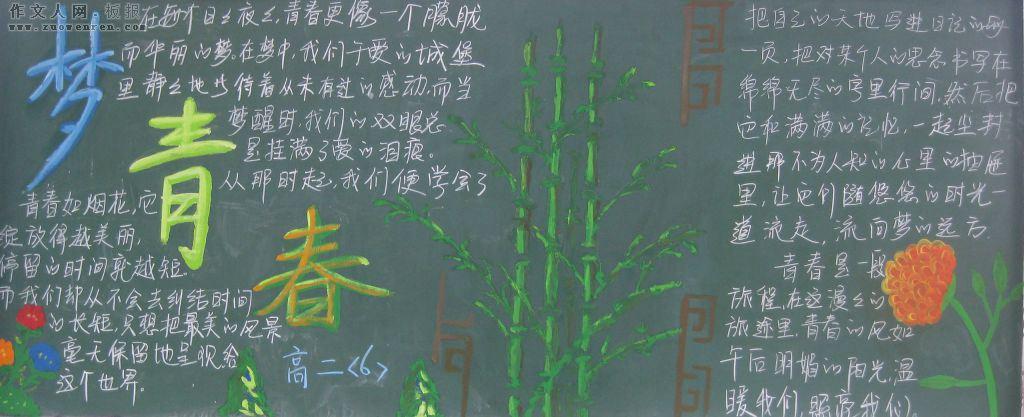 作文人网·板报
www.zuowenren.com
梦
青
春
在每个日日夜夜,青春更像一个朦胧
而华丽的梦。在梦中,我们于爱的城堡
里静静地等待着从未有过的感动,而当
梦醒时,我们的双眼总
是挂满了爱的泪痕。
从那时起,我们便学会了
青春如烟花,它
绽放得越美丽,
停留的时间就越短
而我们却从不会去纠结时间
的长短,只想把最美的风景
毫无保留地呈现给
这个世界。
高二<6>
把自己的天地写进日记的每
一页,把对某个人的思念书写在
绵绵无尽的字里行间,然后把
它和满满的记忆,一起尘封
进那不为人知的心里的抽屉
里,让它们随悠悠的时光一
道流走,流向梦的远方.
青春是一段
旅程,在这漫漫的
旅途里,青春的风如
午后明媚的阳光,温
暖我们,照亮我们